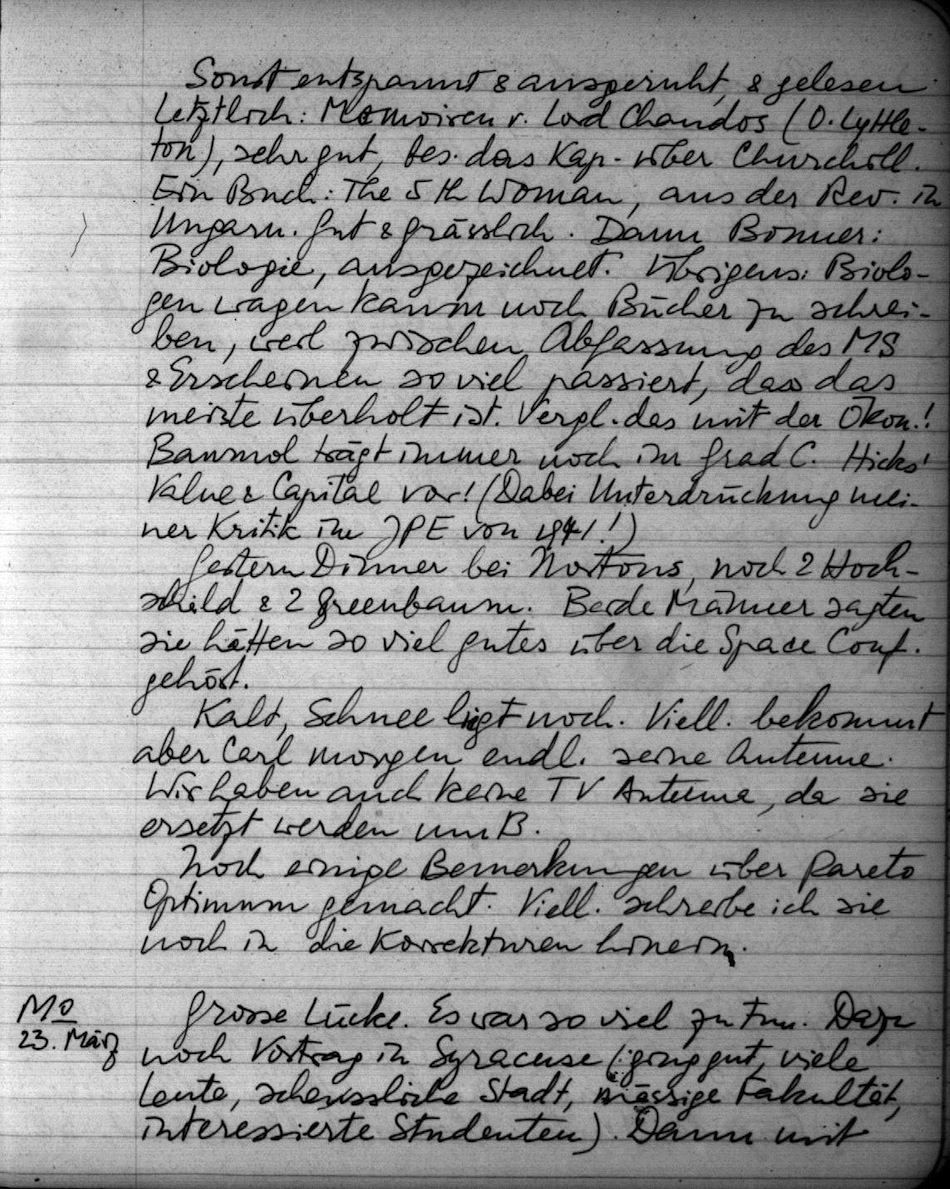 Sonst entspannt & ausgeruht, & gelesen
letztlich: Memoiren v. Lord Chandos (O. Lyttle-
ton), sehr gut, bes. das Kap. über Churchill.
Ein Buch: The 5th Woman, aus der Rev. in
Ungarn. Gut & grässlich. Dann Bonner:
Biologie, ausgezeichnet. Übrigens: Biolo-
gen wagen kaum noch Bücher zu schrei-
ben, weil zwischen Abfassung des MS
& Erscheinen so viel passiert, dass das
meiste überholt ist. Vergl. das mit der Ökon.!
Baumol trägt immer noch im Grad C. Hicks'
Value & Capital vor! (Dabei Unterdrückung mei-
ner Kritik im JPE von 1941!)
Gestern Dinner bei Nortons, noch 2 Hoch-
schild & 2 Greenbaum. Beide Männer sagten
sie hätten so viel gutes über die Space Conf.
gehört.
Kalt, Schnee liegt noch. Viell. bekommt
aber Carl morgen endl. seine Antenne.
Wir haben auch keine TV Antenne, da sie
ersetzt werden muß.
Noch einige Bemerkungen über Pareto
Optimum gemacht. Viell. schreibe ich sie
noch in die Korrekturen hinein.
Mo
23. März
Grosse Lücke. Es war so viel zu tun. Dazu
noch Vortrag in Syracuse (ging gut, viele
Leute, scheussliche Stadt, mässige Fakultät,
interessierte Studenten). Dann mit